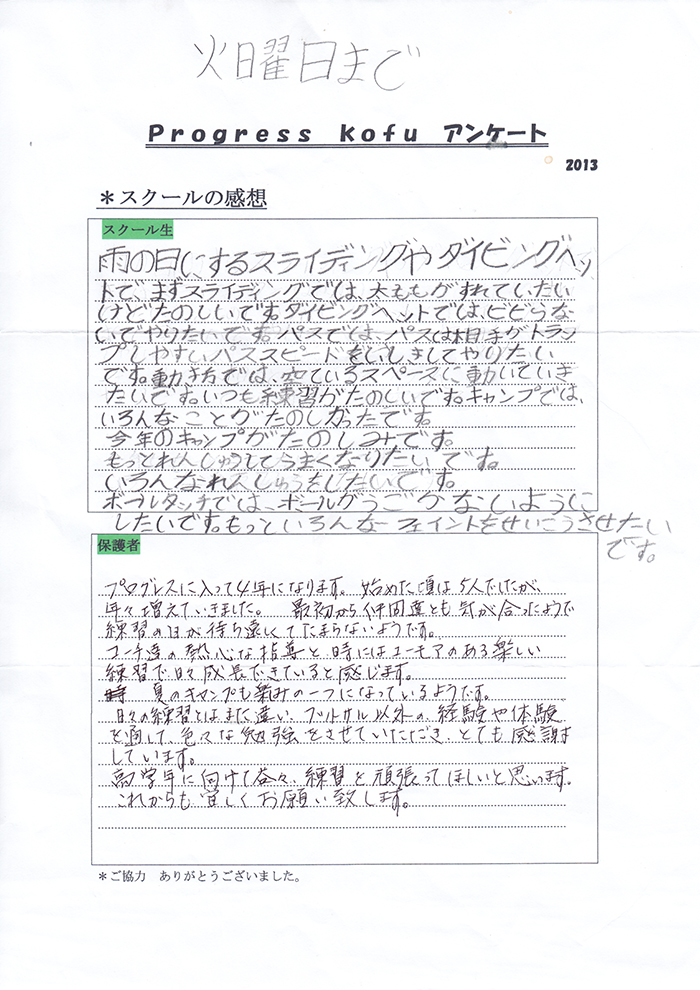 火曜日まで
Progress Kofu アンケート
2013
＊スクールの感想
スクール生
雨の日にするスライディングやダイビングヘッ
トで、まずスライディングでは、太ももがすれていたい
けどたのしいです。ダイビングヘットでは、ビビらな
いでやりたいです。パスでは、パスは相手がトラッ
プしやすいパススピードをいしきしてやりたい
です。動き方では、空いているスペースに動いていき
たいです。いつも練習がたのしいです。キャンプでは、
いろんなことがたのしかったです。
今年のキャンプがたのしみです。
もっとれんしゅうしてうまくなりたいです。
いろんなれんしゅうをしたいです。
ボールタッチでは、ボールがうごかないように
したいです。もっといろんなフェイントをせいこうさせたい
です。
保護者
プログレスに入って4年になります。始めた頃は5人でしたが、
年々増えていきました。最初から仲間達とも気が合ったようで
練習の日が待ち遠しくてたまらないようです。
コーチ達の熱心な指導と、時にはユーモアのある楽しい
練習で日々成長できていると感じます。
夏のキャンプも楽みの一つになっているようです。
日々の練習とはまた違い、フットサル以外の、経験や体験
を通して、色々な勉強をさせていただき、とても感謝
しています。
高学年に向けて益々、練習を頑張ってほしいと思います。
これからも宜しくお願い致します。
＊ご協力 ありがとうございました。